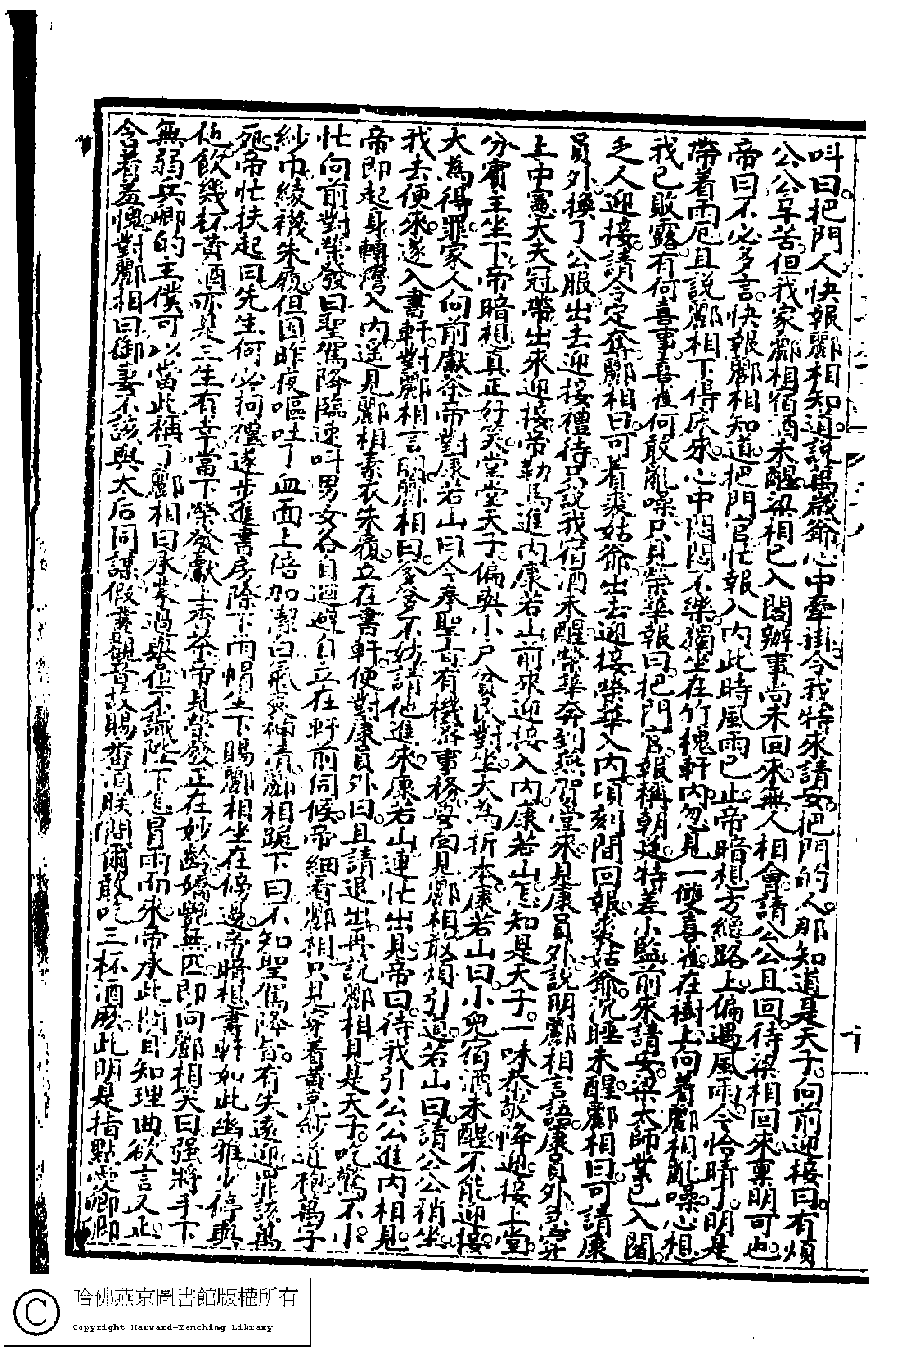 叫曰把門人快報酈相知道說萬歲爺心中牽掛令我特來請安把門的人那知道是天子向前迎接曰有煩
公公辛苦但我家酈相宿酒未醒梁相已入閣辦事尚未回來無人相會請公公且回待梁相回來稟明可也
帝曰不必多言快報酈相知道把門官忙報入內此時風雨已止帝暗想方纔路上偏遇風雨今恰晴了明是
帶着雨厄且說酈相下得床來心中悶悶不樂獨坐在竹槐軒內忽見一雙喜雀在樹上向着酈相亂噪心想
我已敗露有何喜事喜雀何敢亂噪只見榮華報曰把門官報稱朝廷特差小監前來請安梁太師業已入閣
乏人迎接請令定奪酈相曰可着裘姑爺出去迎接榮華入內頃刻間回報裘姑爺沉睡未醒酈相曰可請康
員外換了公服出去迎接禮待只說我宿酒未醒榮華奔到燕賀堂來見康員外說明酈相言語康員外
上中憲大夫冠帶出來迎接帝勒馬進內康若山前來迎接入內康若山怎知是天子一味恭敬降迎接上堂
分賓主坐下帝暗想真正好笑堂堂天子偏與小戶貧民對坐大為折本康若山曰小兒宿酒未醒不能迎接
大為得罪家人向前獻茶帝對康若山曰今奉聖旨有機密事務要面見酈相敢煩引道若山曰請公公稍坐
我去便來遂入書軒對酈相言明酈相曰爹爹不妨請他進來康若山連忙出見帝曰待我引公公進內相見
帝即起身轉灣入內遙見酈相素衣朱履立在書軒便對康員外曰且請退出再說酈相見是天子吃驚不小
忙向前對榮發曰聖駕降臨速叫男女各自迴避自立在軒前伺候帝細看酈相只見穿着黃羅紗道袍萬字
紗巾綾襪朱履但因昨夜嘔吐了血面上倍加潔白氣爽神清酈相跪下曰不知聖駕降臨有失遠迎罪該萬
死帝忙扶起曰先生何必拘禮遂步進書房除下雨帽坐下賜酈相坐在傍邊帝暗想書軒如此幽雅少停與
他飲幾杯黃酒亦是三生有幸當下榮發獻上香茶帝見榮發正在妙齡嬌艷無匹即向酈相笑曰強將手下
無弱兵卿的主僕可以當此稱了酈相曰承蒙過譽但不識陛下怎冒雨而來帝承此問自知理曲欲言又止
含着羞愧對酈相曰御妻不該與太后同謀假畫觀音故賜香酒朕問爾敢吃三杯酒麼此明是指點愛卿卿
哈佛燕京圖書館版權所有
Copyright Harvard-Yenching Library